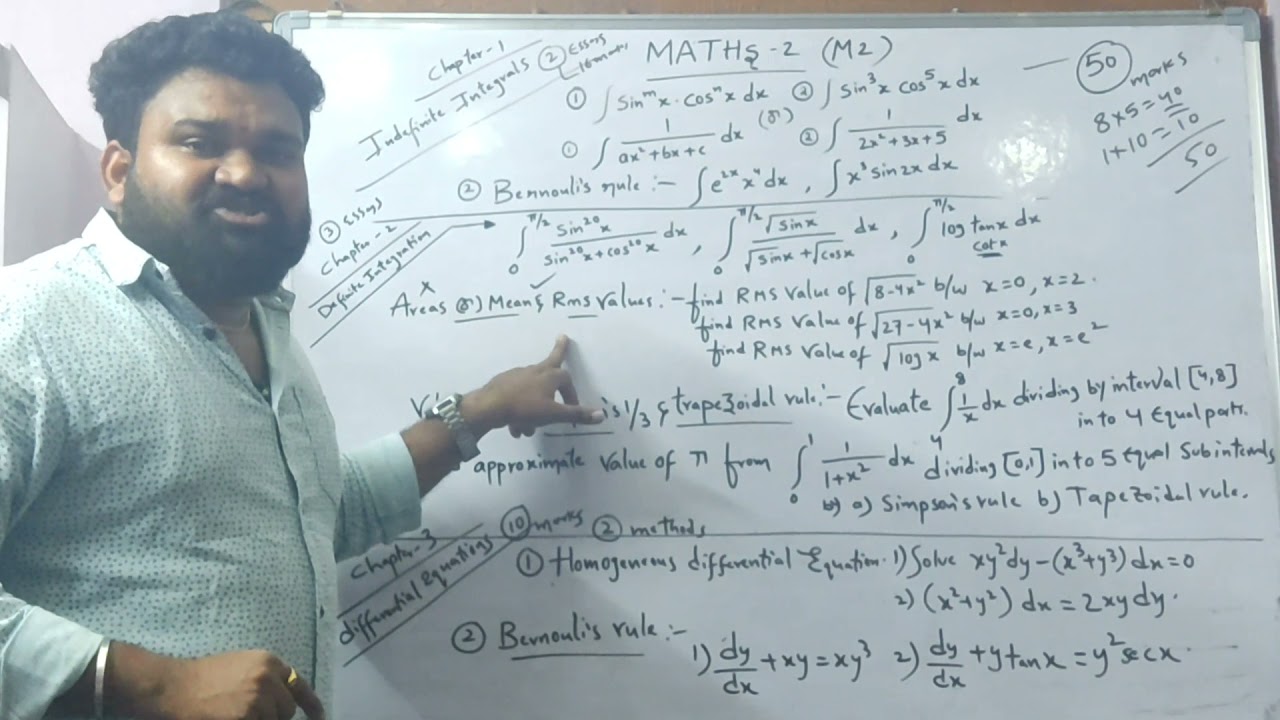 MATHS-2 (M2)
Chapter-1
Indefinite Integrals
② Essays
① ∫ Sinᵐx · cosⁿx dx ② ∫ Sin³x cos⁵x dx
① ∫ 1/(ax²+bx+c) dx (or) ② ∫ 1/(2x²+3x+5) dx
② Bernouli's rule :- ∫ e²ˣ x⁴ dx , ∫ x³ sin2x dx
50 marks
8×5=40
1+10=10
50
③ Essays
Chapter-2
Definite Integration
∫₀^π/2 Sin²⁰x/(Sin²⁰x+cos²⁰x) dx , ∫₀^π/2 √sinx/(√sinx+√cosx) dx , ∫₀^π/2 log tanx dx
cotx
Areas (or) Mean & Rms Values :- find RMS Value of √8-4x² b/w x=0, x=2.
find RMS Value of √27-4x² b/w x=0, x=3
find RMS Value of √logx b/w x=e, x=e²
1/3 & trapezoidal rule :- Evaluate ∫₄⁸ 1/x dx dividing by interval [4,8]
in to 4 Equal parts.
approximate Value of π from ∫₀¹ 1/(1+x²) dx dividing [0,1] in to 5 equal Subintervals
by a) Simpson's rule b) Tapezoidal rule.
Chapter-3
differential Equations
⑩ marks ② methods
① Homogeneous differential Equation. 1) Solve xy²dy-(x³+y³)dx=0
2) (x²+y²) dx = 2xy dy.
② Bernouli's rule :-
1) dy/dx + xy = xy³ 2) dy/dx + y tanx = y² secx